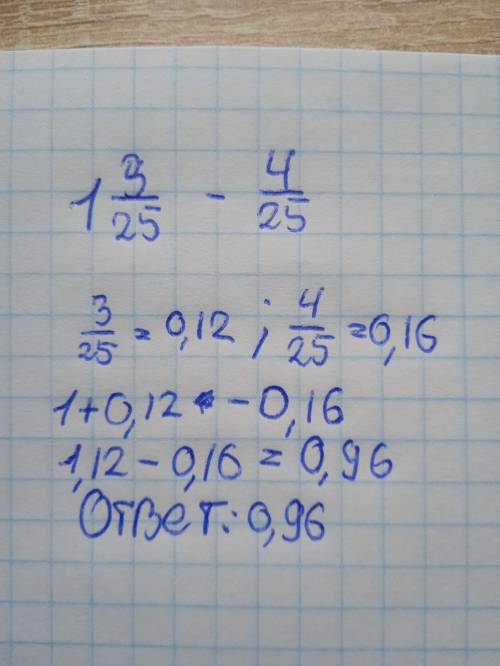 1 3/25 - 4/25
3/25 = 0,12 ; 4/25 = 0,16
1+0,12 - 0,16
1,12 - 0,16 = 0,96
Ответ: 0,96